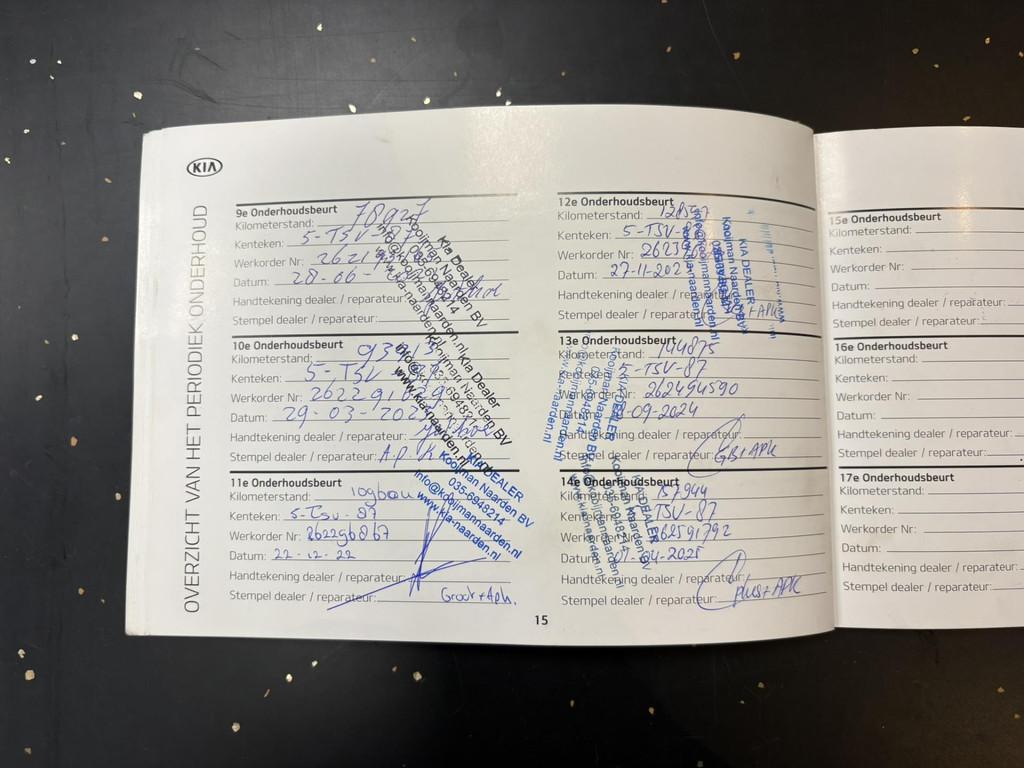 KIA
OVERZICHT VAN HET PERIODIEK ONDERHOUD
9e Onderhoudsbeurt
Kilometerstand: 78927
Kenteken: 5-TSV-87
Werkorder Nr:
Datum: 28-06-
Handtekening dealer / reparateur:
Stempel dealer / reparateur:
Kia Dealer
Kooijman Naarden BV
035-6948214
info@kooijmannaarden.nl
www.kia-naarden.nl
10e Onderhoudsbeurt
Kilometerstand:
Kenteken: 5-TSV-87
Werkorder Nr:
Datum: 29-03-202
Handtekening dealer / reparateur:
Stempel dealer / reparateur: A.p.k
Kia Dealer
Kooijman Naarden BV
035-6948214
info@kooijmannaarden.nl
www.kia-naarden.nl
11e Onderhoudsbeurt
Kilometerstand:
Kenteken: 5-TSV-87
Werkorder Nr:
Datum: 22-12-22
Handtekening dealer / reparateur:
Stempel dealer / reparateur: Groot + Apk.
KIA DEALER
Kooijman Naarden BV
035-6948214
info@kooijmannaarden.nl
www.kia-naarden.nl
12e Onderhoudsbeurt
Kilometerstand:
Kenteken: 5-TSV-8
Werkorder Nr:
Datum: 27-11-202
Handtekening dealer / reparateur:
Stempel dealer / reparateur: + APK
KIA DEALER
Kooijman Naarden BV
info@kooijmannaarden.nl
www.kia-naarden.nl
13e Onderhoudsbeurt
Kilometerstand: 144875
Kenteken: 5-TSV-87
Werkorder Nr: 262494590
Datum: -09-2024
Handtekening dealer / reparateur:
Stempel dealer / reparateur: GB+APK
KIA DEALER
Kooijman Naarden BV
035-6948214
info@kooijmannaarden.nl
www.kia-naarden.nl
14e Onderhoudsbeurt
Kilometerstand: 157944
Kenteken: 5-TSV-87
Werkorder Nr: 262591792
Datum: 01-04-2025
Handtekening dealer / reparateur:
Stempel dealer / reparateur: plus+APK
KIA DEALER
Kooijman Naarden BV
035-6948214
info@kooijmannaarden.nl
www.kia-naarden.nl
15
15e Onderhoudsbeurt
Kilometerstand:
Kenteken:
Werkorder Nr:
Datum:
Handtekening dealer / reparateur:
Stempel dealer / reparateur:
16e Onderhoudsbeurt
Kilometerstand:
Kenteken:
Werkorder Nr:
Datum:
Handtekening dealer / reparateur:
Stempel dealer / reparateur:
17e Onderhoudsbeurt
Kilometerstand:
Kenteken:
Werkorder Nr:
Datum:
Handtekening dealer / reparateur:
Stempel dealer / reparateur: